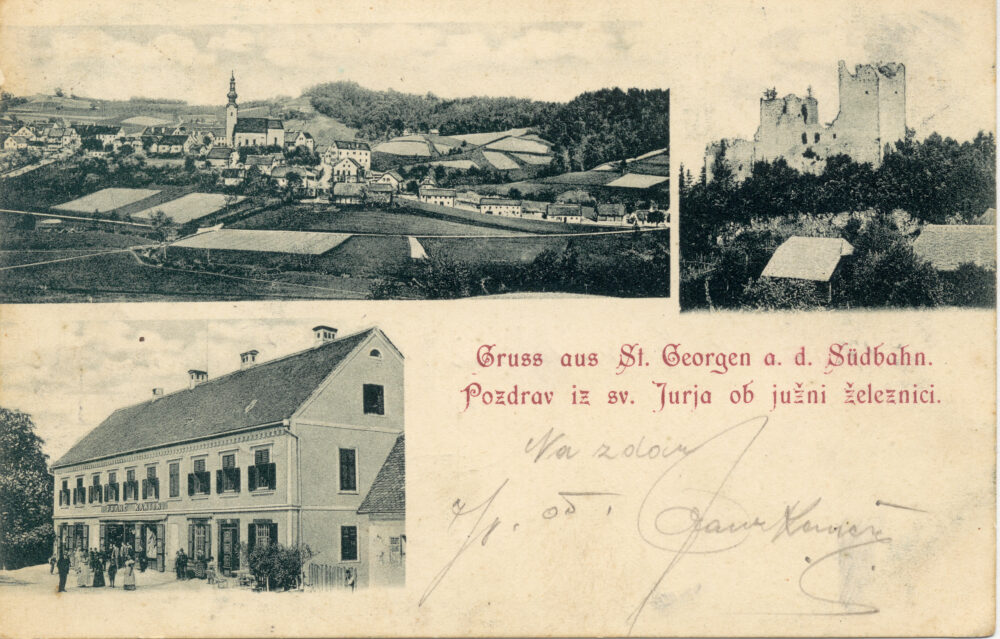 Gruss aus St. Georgen a. d. Südbahn.
Pozdrav iz sv. Jurja ob južni železnici.
Na zdar